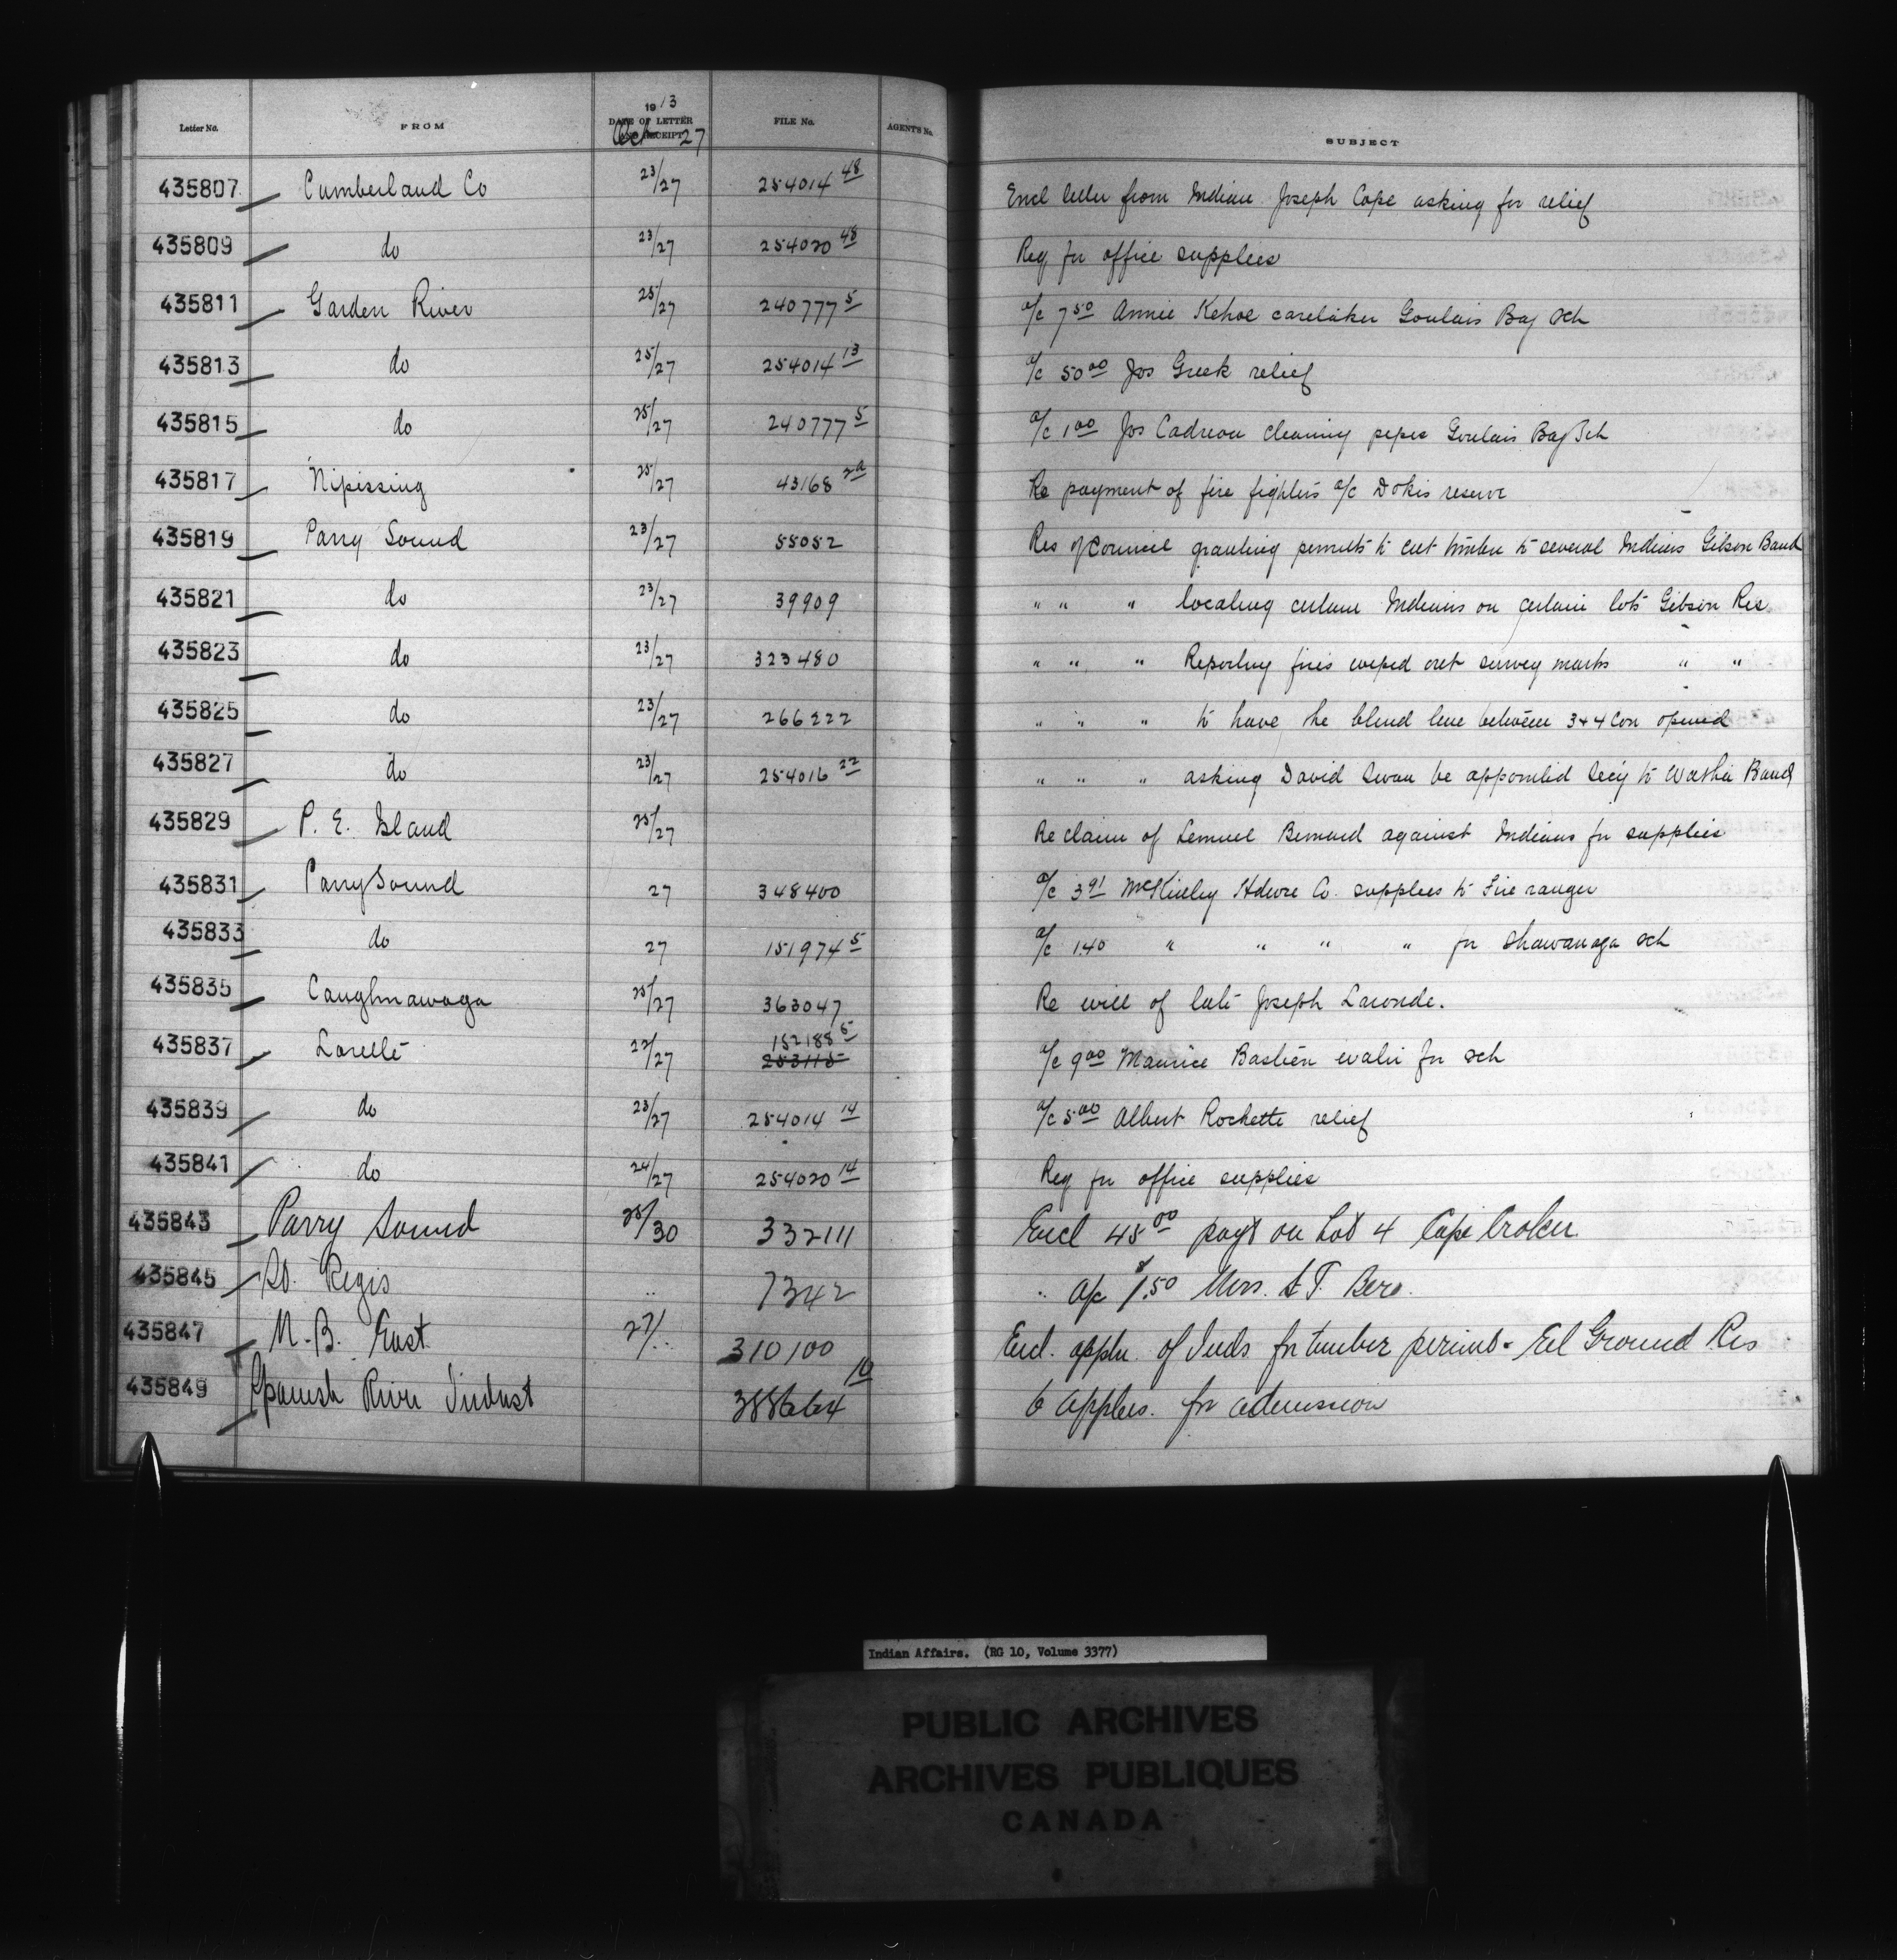 Letter No. FROM 1913 DATE OF LETTER AND RECEIPT Oct 27 FILE No. AGENT'S No. SUBJECT
435807 Cumberland Co 23/27 254014 48 Encl letter from Indian Joseph Cope asking for relief
435809 do 23/27 254020 48 Req for office supplies
435811 Garden River 25/27 240777 5 a/c 7 50 Annie Kehoe caretaker Goulais Bay Sch
435813 do 25/27 254014 13 a/c 50 00 Jos Greek relief
435815 do 25/27 240777 5 a/c 1 00 Jos Cadreau cleaning pipes Goulais Bay Sch
435817 Nipissing 25/27 43168 Re payment of fire fighters a/c Dokis reserve
435819 Parry Sound 23/27 55052 Res of Council granting permits to cut timber to several Indians Gibson Band
435821 do 23/27 39909 " " " locating certain Indians on certain lots Gibson Res
435823 do 23/27 323480 " " " Reporting fires wiped out survey marks " "
435825 do 23/27 266222 " " " to have the blind line between 3+4 Con opened
435827 do 23/27 254016 22 " " " asking David Swan be appointed Secy to Band
435829 P. E. Island 25/27 Re claim of Lemuel Bernard against Indians for supplies
435831 Parry Sound 27 348400 a/c 3 91 Hdwre Co. supplies to Fire ranger
435833 do 27 151974 5 a/c 1.40 " " " " for Shawanaga Sch
435835 Caughnawaga 25/27 363047 Re will of late Joseph Laronde.
435837 Lorette 22/27 152188 5 253115 a/c 9 00 Maurice Bastien for sch
435839 do 23/27 254014 14 a/c 5 00 Albert Rochette relief
435841 do 24/27 254020 14 Req for office supplies
435843 Parry Sound 25/30 332111 Encl 45 00 payt on Lot 4 Cape Croker.
435845 St. Regis " 7342 " a/c $1.50 Mrs. Bero.
435847 N.B. East 27/.. 310100 Encl. appln. of Inds for timber permits - Eel Ground Res
435849 Spanish River Indust 388664 10 6 applns. for admission
Indian Affairs. (RG 10, Volume 3377)
PUBLIC ARCHIVES
ARCHIVES PUBLIQUES
CANADA